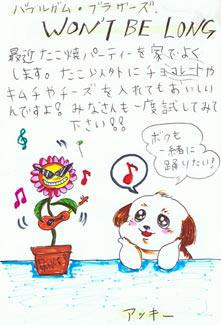 バブルガム・ブラザーズ.
WON'T BE LONG
最近たこ焼パーティーを家でよく
します。たこ以外にチョコレートや
キムチやチーズを入れてもおいしい
んですよ!みなさんも一度試してみて
下さい!!
ボクも
一緒に
踊りたい!
アッキー